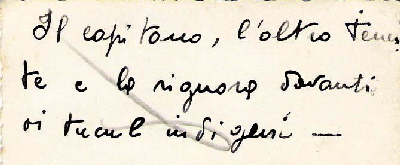 Il capitano, l'altro tenen
te e le signore davanti
ai tucul indigeni —